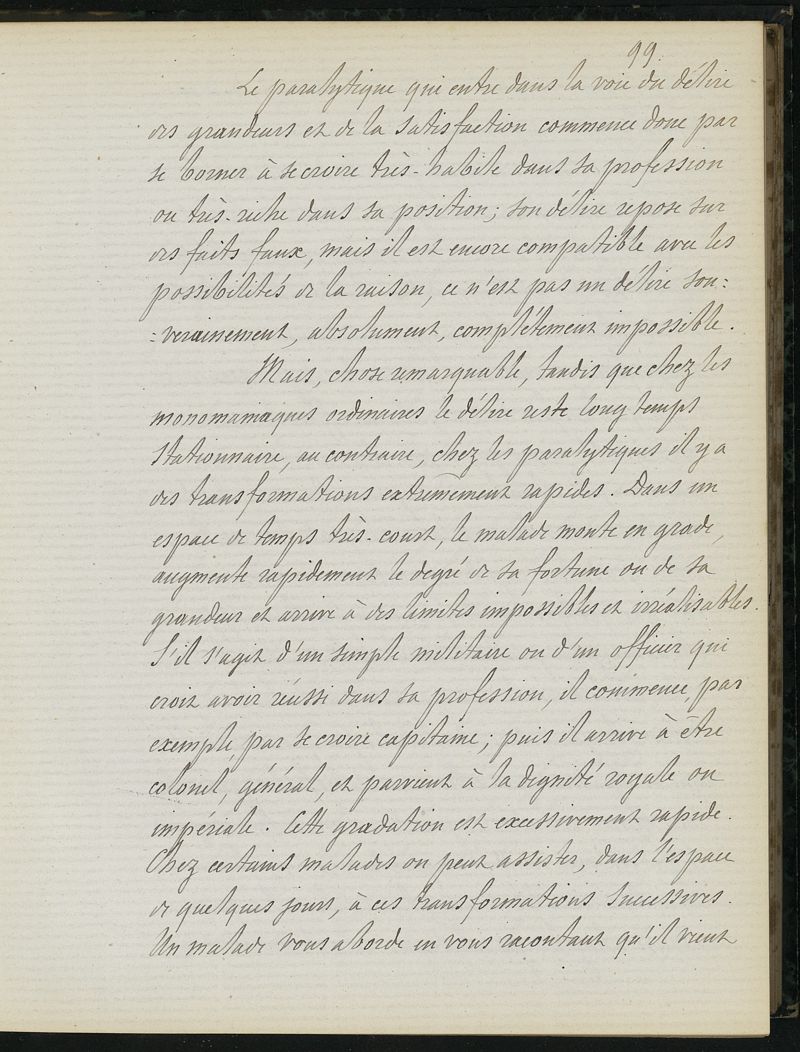 99.
Le paralytique qui entre dans la voie du délire
des grandeurs et de la satisfaction commence donc par
se borner à se croire très-habile dans sa profession
ou très-riche dans sa position; son délire repose sur
des faits faux, mais il est encore compatible avec les
possibilités de la raison, ce n'est pas un délire sou=
=verainement, absolument, complètement impossible.
Mais, chose remarquable, tandis que chez les
monomaniaques ordinaires le délire reste long temps
stationnaire, au contraire, chez les paralytiques il y a
des transformations extrêmement rapides. Dans un
espace de temps très-court, le malade monte en grade,
augmente rapidement le degré de sa fortune ou de sa
grandeur et arrive à des limites impossibles et irréalisables.
S'il s'agit d'un simple militaire ou d'un officier qui
croit avoir réussi dans sa profession, il commence, par
exemple, par se croire capitaine; puis il arrive à être
colonel, général, et parvient à la dignité royale ou
impériale. Cette gradation est excessivement rapide.
Chez certains malades on peut assister, dans l'espace
de quelques jours, à ces transformations successives.
Un malade vous aborde en vous racontant qu'il vient